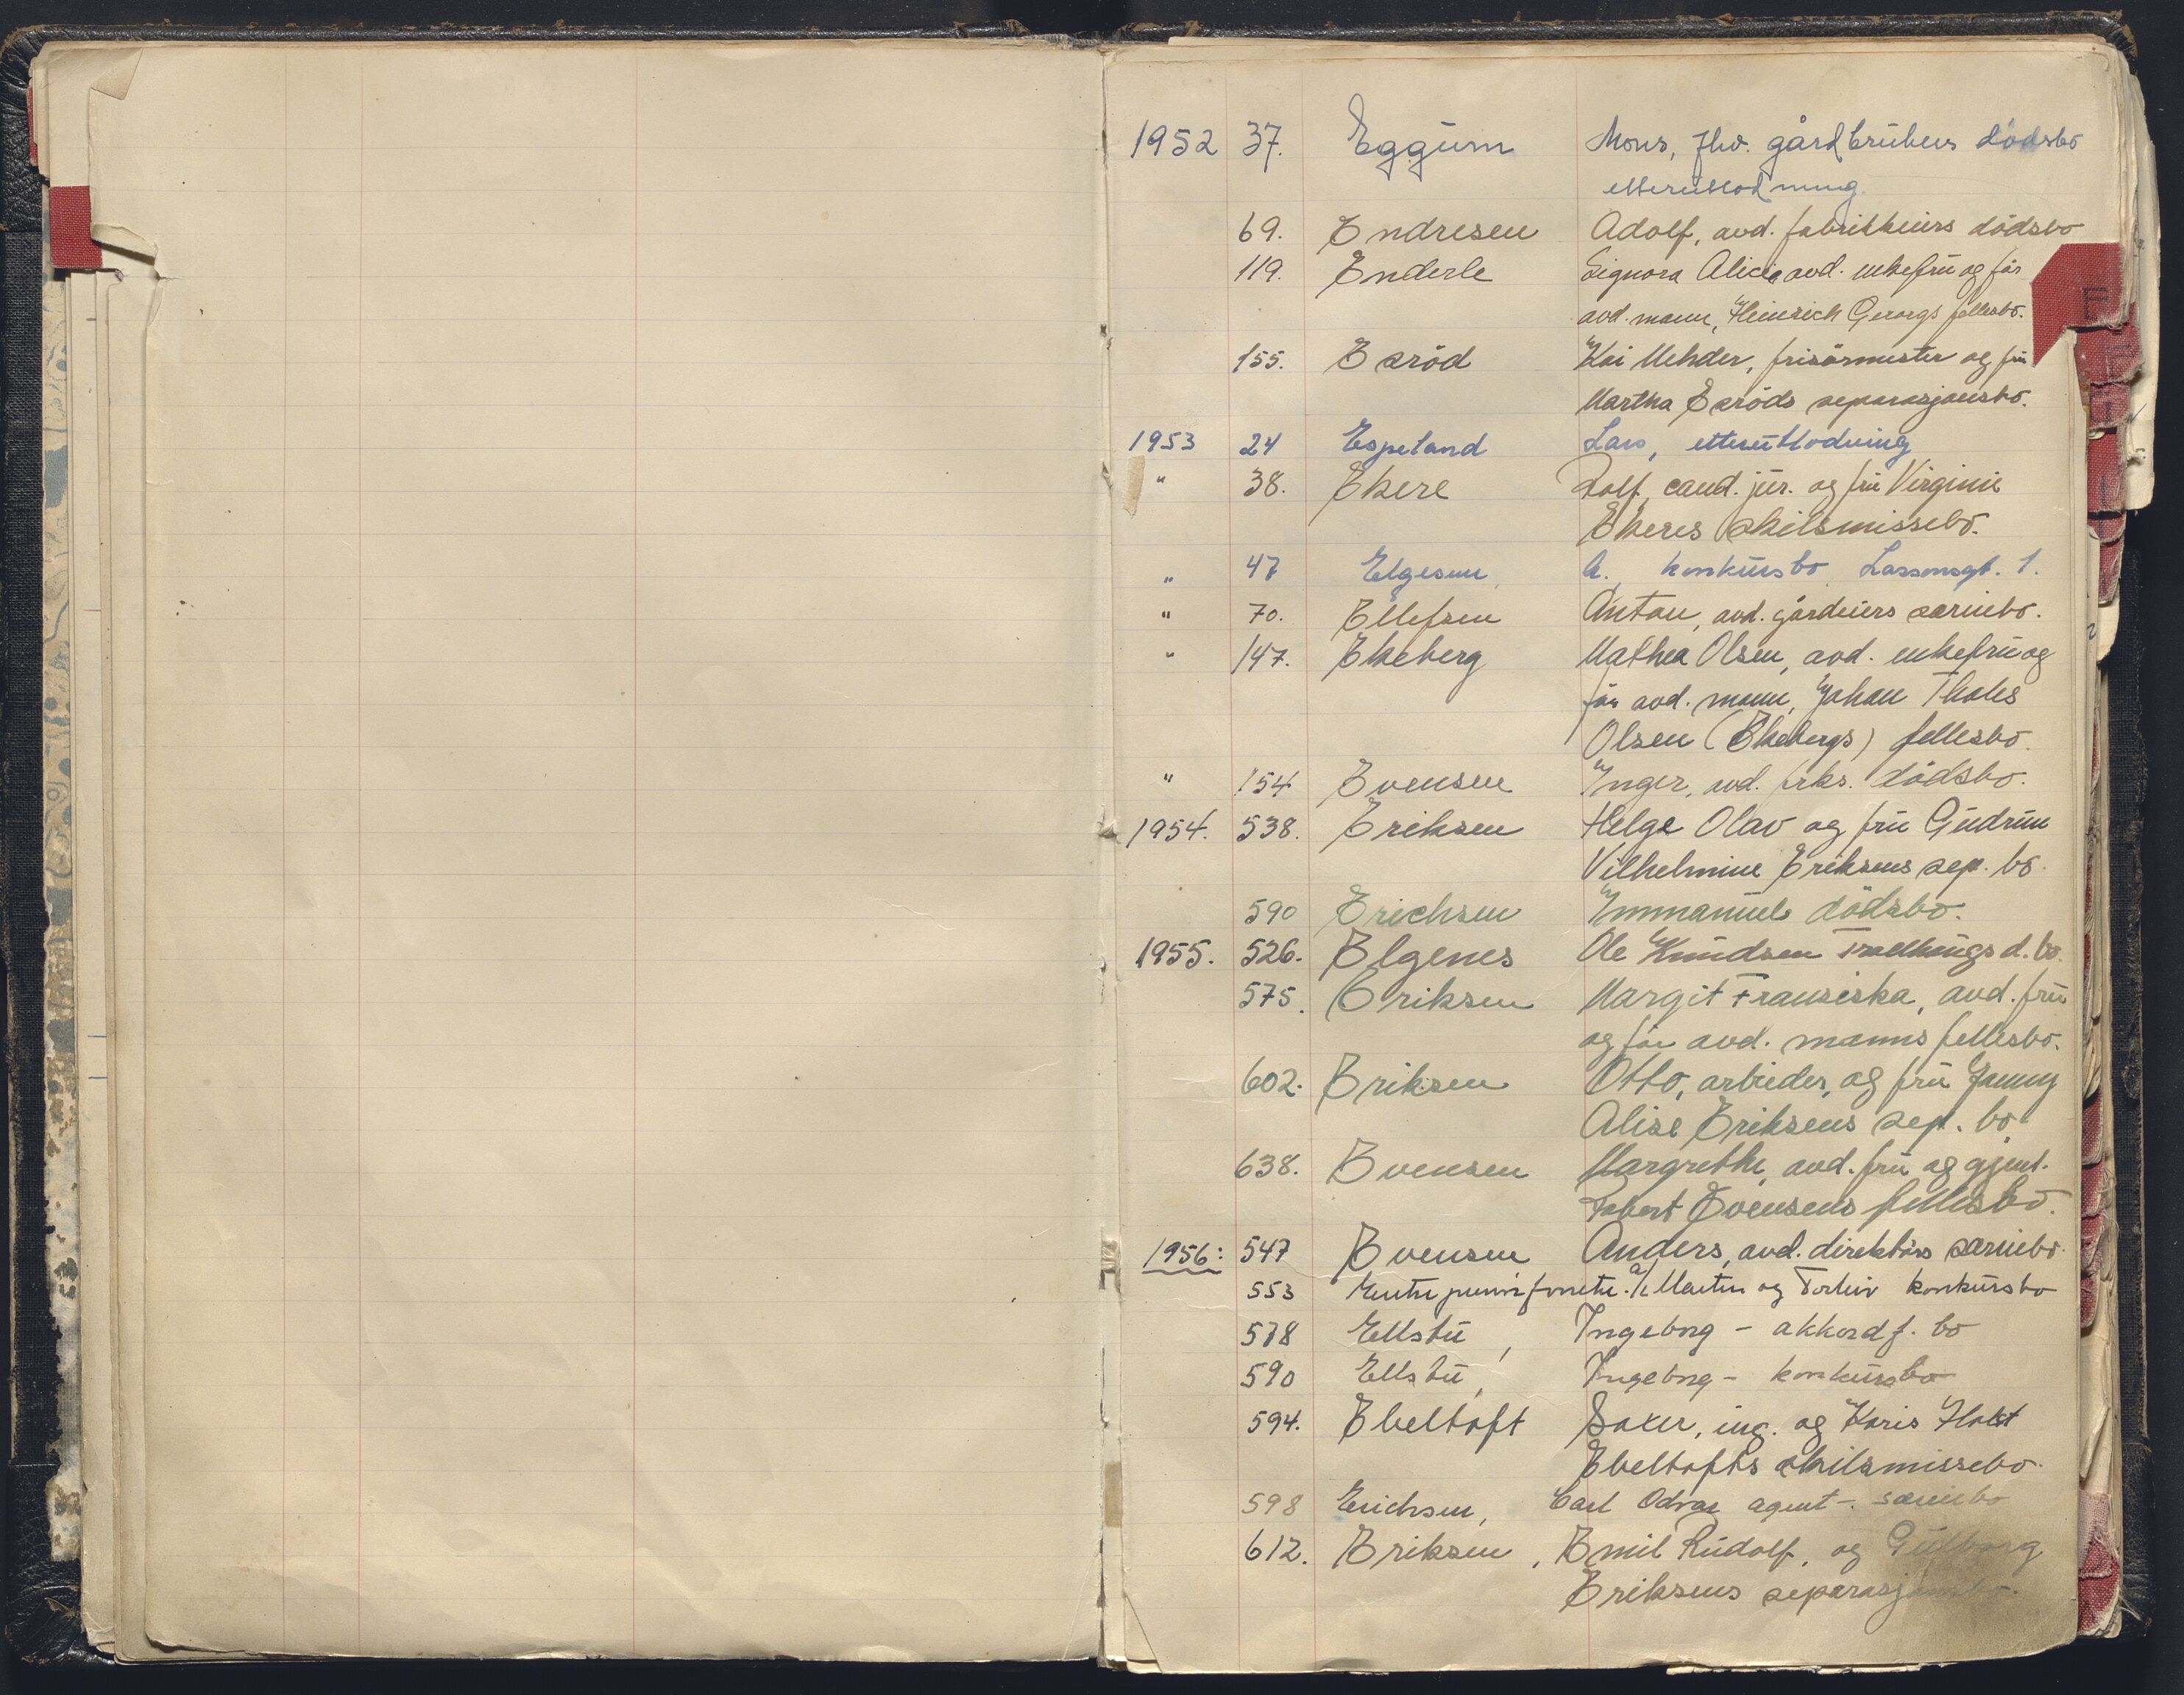 1952 37. Eggum Mons, fhv. gårdbrukers dödsbo
etterutlodning.
69. Endresen Adolf, avd. fabrikkeiers dödsbo
119. Enderle Signora Alicia avd. enkefru ogför
avd. mann, Heinrich Georgs fellesbo.
155. Exröd Kai Mehder, frisörmester og fru
Martha Exröds separasjonsbo.
1953 24 Espeland Lars, etterutlodning
" 38. Ekere Rolf, cand. jur. og fru Virginie
Ekeres skilsmissebo.
" 47 Elgesem, A., konkursbo Lassonsgt. 1.
" 70. Ellefsen Anton, avd. gårdeiers særiebo.
" 147. Ekeberg Mathea Olsen, avd. enkefru og
för avd. mann, Johan Thales
Olsen (Ekebergs) fellesbo.
" 154 Evensen Inger, avd. frks. dödsbo.
1954. 538. Eriksen Helge Olav og fru Gudrun
Vilhelmine Eriksens sep. bo.
590 Erichsen Immanuels dödsbo.
1955. 526. Elgenes Ole Knudsen d. bo.
575. Eriksen Margit Franciska, avd. fru
og för avd. manns fellesbo.
602. Eriksen Otto, arbieder, og fru Jenny
Alise Eriksens sep. bo.
638. Evensen Margrethe, avd. fru og gjenl.
Robert Evensens fellesbo.
1956: 547 Evensen Anders, avd. direktörs særiebo.
553 Entreprenörforretn. A/S Martin og konkursbo
578 Ellstu, Ingeborg - akkordf. bo
590 Ellstu, Ingeborg - konkursbo
594. Ebeltoft Saxer, ing. og Karis Holst
Ebeltofts skilsmissebo.
598 Erichsen, Carl Odvar agent -. særiebo
612. Eriksen, Emil Rudolf, og Gulborg
Eriksens separasjonsbo.
E
F